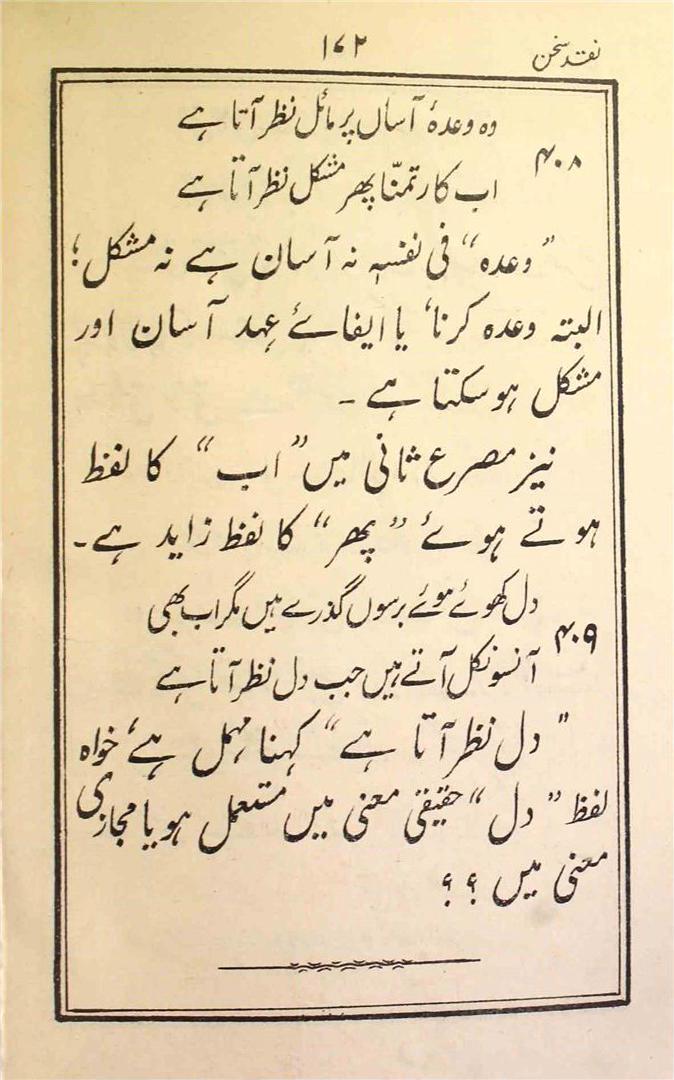 نقد سخن
۱۷۲
وہ وعدۂ آساں پر مائل نظر آتا ہے
۴۰۸
اب کار تمنّا پھر مشکل نظر آتا ہے
”وعدہ“ فی نفسہٖ نہ آسان ہے نہ مشکل؛
البتہ وعدہ کرنا، یا ایفائے عہد آسان اور
مشکل ہو سکتا ہے ۔
نیز مصرع ثانی میں ”اب“ کا لفظ
ہوتے ہوئے ”پھر“ کا لفظ زاید ہے۔
دل کھوئے ہوئے برسوں گذرے ہیں مگر اب بھی
۴۰۹
آنسو نکل آتے ہیں جب دل نظر آتا ہے
”دل نظر آتا ہے“ کہنا مہمل ہے، خواہ
لفظ ”دل“ حقیقی معنی میں مستعمل ہو یا مجازی
معنی میں ؟ ؟